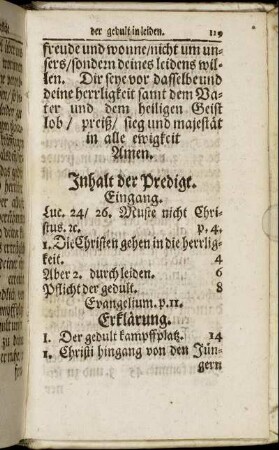 der gedult in leiden. 119
freude und wonne/nicht um un-
sers/sondern deines leidens wil-
len. Dir seye vor dasselbe und
deine herrligkeit samt dem Va-
ter und dem heiligen Geist
lob/ preiß/ sieg und majestät
in alle ewigkeit
Amen.
Inhalt der Predigt.
Eingang.
Luc. 24/ 26. Muste nicht Chri-
stus. ꝛc. p. 4.
1. Die Christen gehen in die herrlig-
keit. 4
Aber 2. durch leiden. 6
Pflicht der gedult. 8
Evangelium. p. 11.
Erklärung.
I. Der gedult kampffplatz. 14
1. Christi hingang von den Jün-
gern